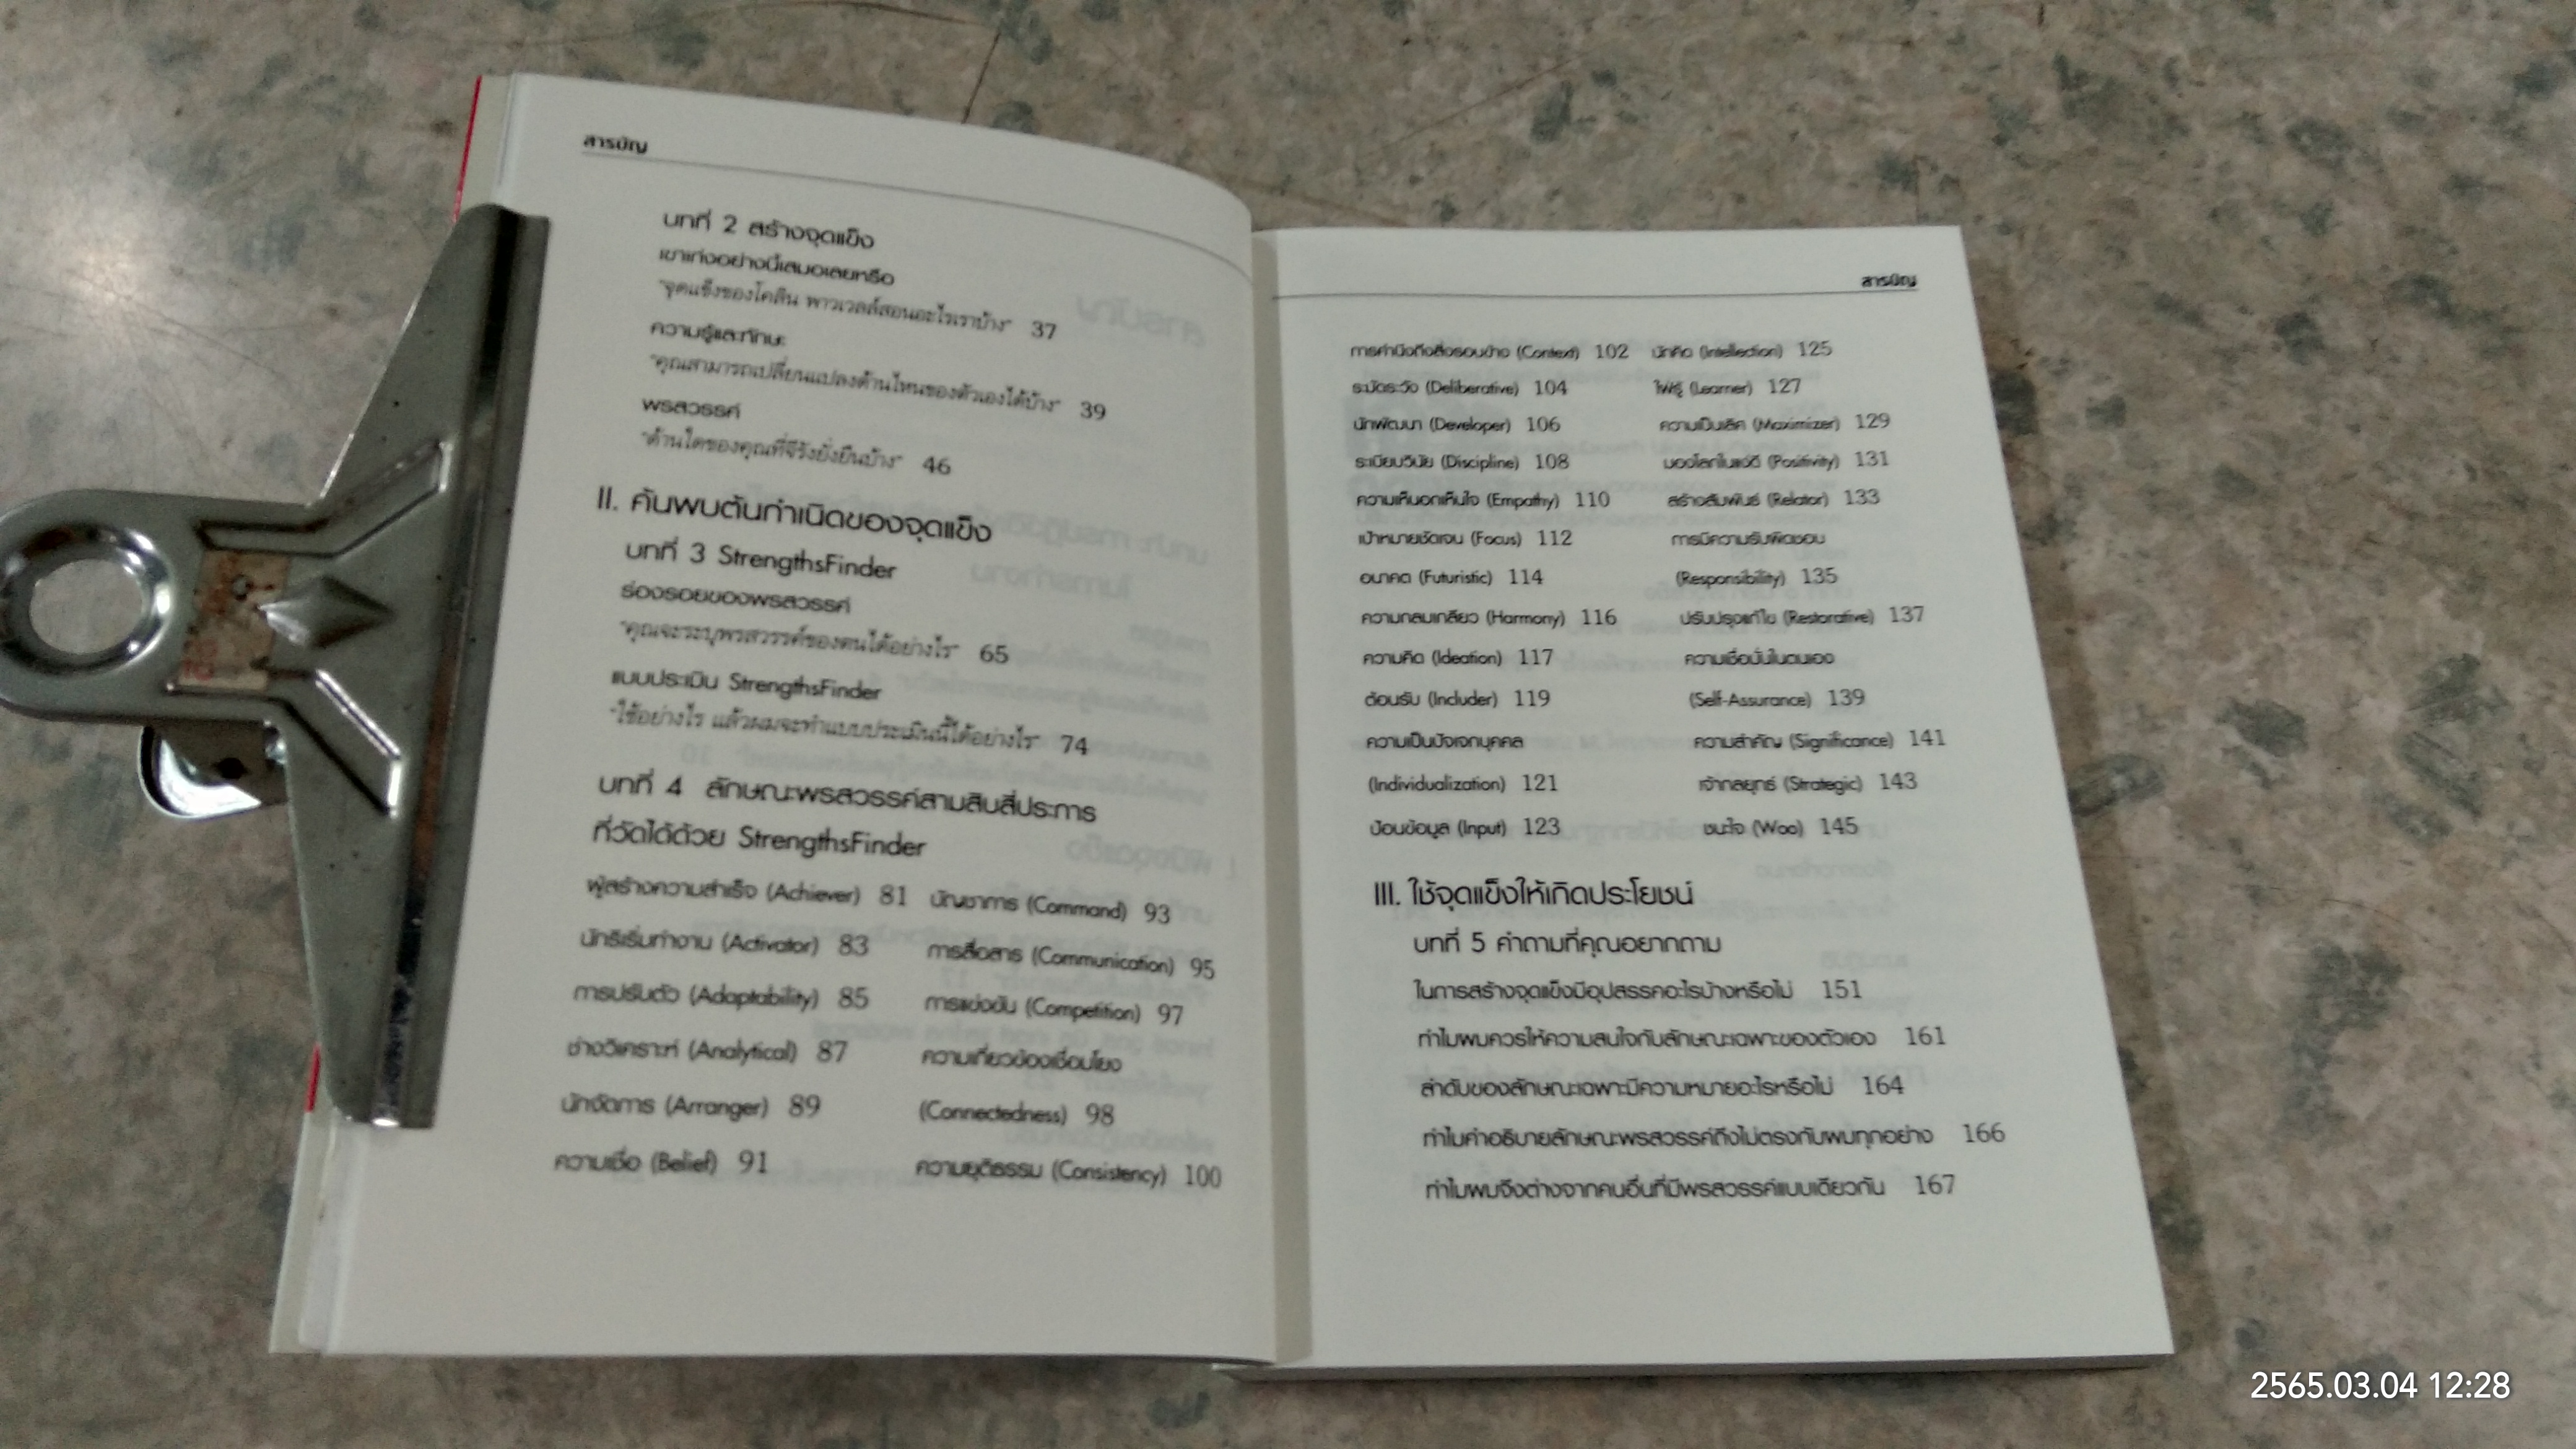 สารบัญ
บทที่ 2 สร้างจุดแข็ง
เขาเก่งอย่างนี้เสมอเลยหรือ
"จุดแข็งของโคลิน พาวเวลล์สอนอะไรเราบ้าง" 37
ความรู้และทักษะ
"คุณสามารถเปลี่ยนแปลงด้านไหนของตัวเองได้บ้าง" 39
พรสวรรค์
"ด้านใดของคุณที่จีรังยั่งยืนบ้าง" 46
II. ค้นพบต้นกำเนิดของจุดแข็ง
บทที่ 3 StrengthsFinder
ร่องรอยของพรสวรรค์
"คุณจะระบุพรสวรรค์ของตนได้อย่างไร" 65
แบบประเมิน StrengthsFinder
"ใช้อย่างไร แล้วผมจะทำแบบประเมินนี้ได้อย่างไร" 74
บทที่ 4 ลักษณะพรสวรรค์สามสิบสี่ประการ
ที่วัดได้ด้วย StrengthsFinder
ผู้สร้างความสำเร็จ (Achiever) 81
นักริเริ่มทำงาน (Activator) 83
การปรับตัว (Adaptability) 85
ช่างวิเคราะห์ (Analytical) 87
นักจัดการ (Arranger) 89
ความเชื่อ (Belief) 91
บัญชาการ (Command) 93
การสื่อสาร (Communication) 95
การแข่งขัน (Competition) 97
ความเกี่ยวข้องเชื่อมโยง
(Connectedness) 98
ความยุติธรรม (Consistency) 100
สารบัญ
การคำนึงถึงสิ่งรอบข้าง (Context) 102
ระมัดระวัง (Deliberative) 104
นักพัฒนา (Developer) 106
ระเบียบวินัย (Discipline) 108
ความเห็นอกเห็นใจ (Empathy) 110
เป้าหมายชัดเจน (Focus) 112
อนาคต (Futuristic) 114
ความกลมเกลียว (Harmony) 116
ความคิด (Ideation) 117
ต้อนรับ (Includer) 119
ความเป็นปัจเจกบุคคล
(Individualization) 121
ป้อนข้อมูล (Input) 123
นักคิด (Intellection) 125
ใฝ่รู้ (Learner) 127
ความเป็นเลิศ (Maximizer) 129
มองโลกในแง่ดี (Positivity) 131
สร้างสัมพันธ์ (Relator) 133
การมีความรับผิดชอบ
(Responsibility) 135
ปรับปรุงแก้ไข (Restorative) 137
ความเชื่อมั่นในตนเอง
(Self-Assurance) 139
ความสำคัญ (Significance) 141
เจ้ากลยุทธ์ (Strategic) 143
ชนะใจ (Woo) 145
III. ใช้จุดแข็งให้เกิดประโยชน์
บทที่ 5 คำถามที่คุณอยากถาม
ในการสร้างจุดแข็งมีอุปสรรคอะไรบ้างหรือไม่ 151
ทำไมผมควรให้ความสนใจกับลักษณะเฉพาะของตัวเอง 161
ลำดับของลักษณะเฉพาะมีความหมายอะไรหรือไม่ 164
ทำไมคำอธิบายลักษณะพรสวรรค์ถึงไม่ตรงกับผมทุกอย่าง 166
ทำไมผมจึงต่างจากคนอื่นที่มีพรสวรรค์แบบเดียวกัน 167
2565.03.04 12:28